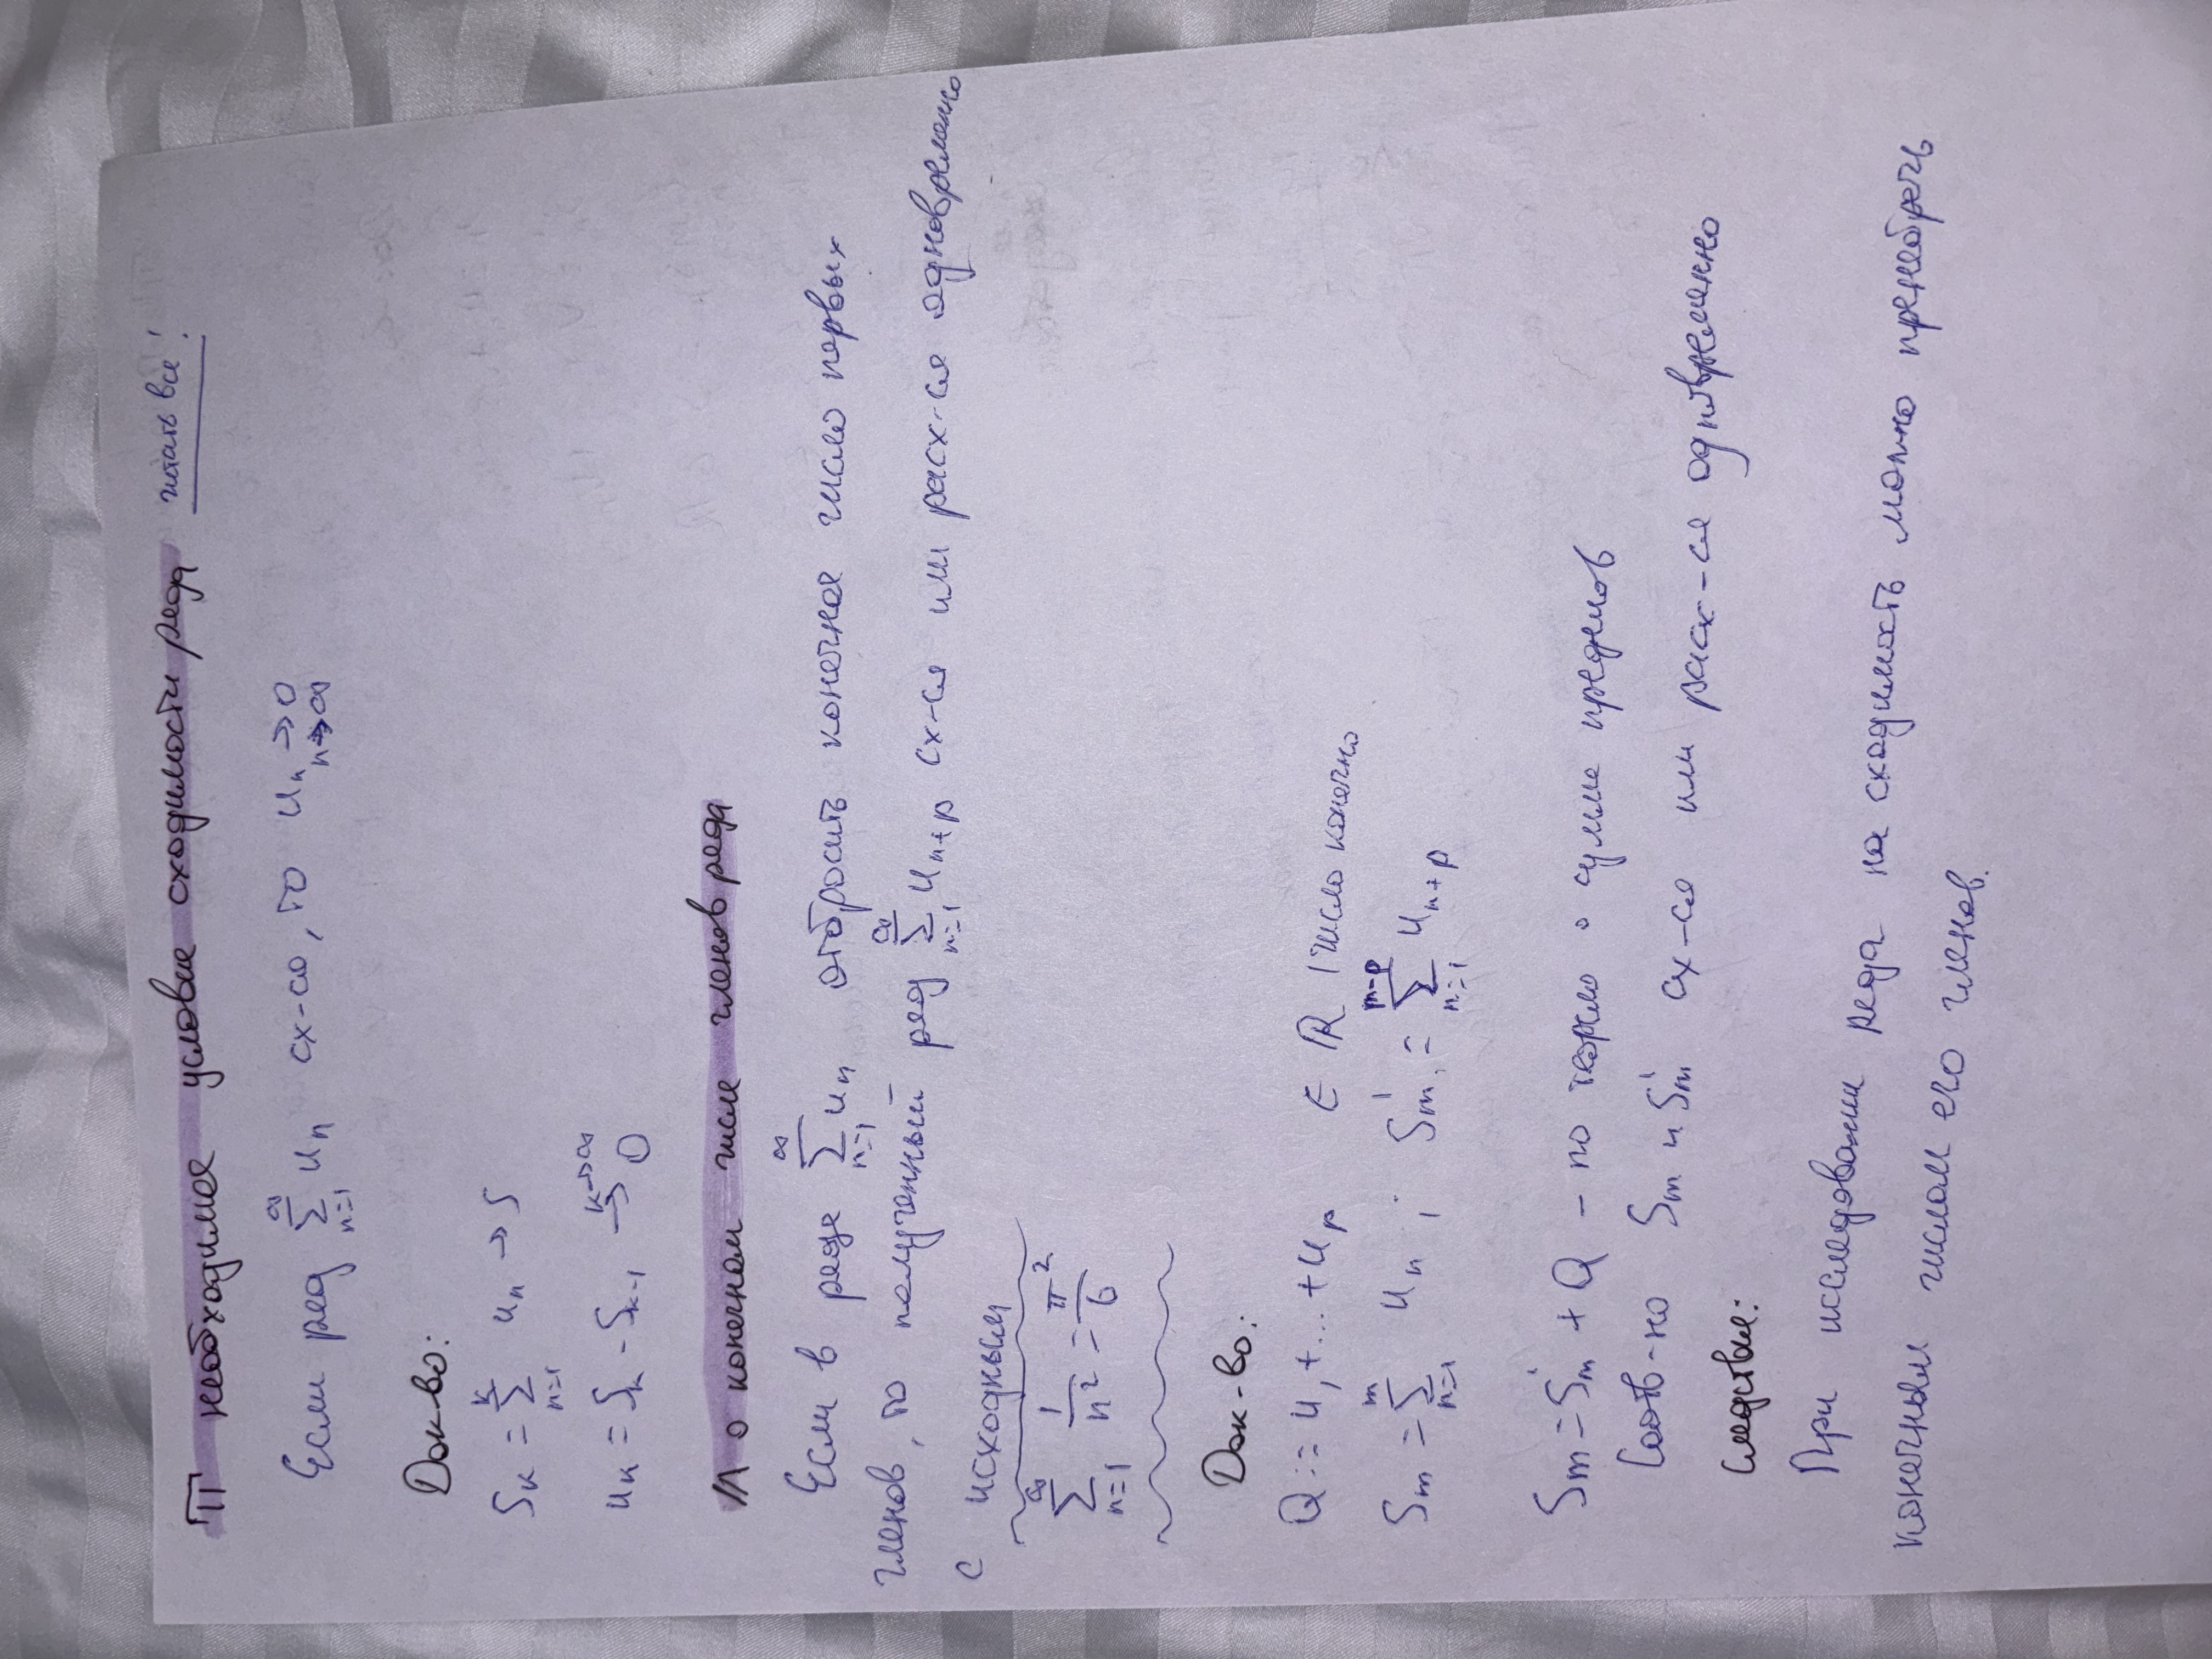 T необходимое условие сходимости ряда читать все!
Если ряд ∑_{n=1}^{∞} u_n сх-ся, то u_n →0 n→∞
Док-во:
S_k = ∑_{n=1}^{k} u_n → S
u_k = S_k - S_{k-1} →^{k→∞} 0
Л о конечном числе членов ряда
Если в ряде ∑_{n=1}^{∞} u_n отбросить конечное число первых
членов, то полученный ряд ∑_{n=1}^{∞} u_{n+p} сх-ся или расх-ся одновременно
с исходным
∑_{n=1}^{∞} 1/n² = π²/6
Док-во:
Q := u_1 + ... + u_p ∈ ℝ | число конечно
S_m = ∑_{n=1}^{m} u_n ; S'_m = ∑_{n=1}^{m-p} u_{n+p}
S_m = S'_m + Q - по теореме о сумме пределов
Соотв-но S_m и S'_m сх-ся или расх-ся одновременно
Следствие:
При исследовании ряда на сходимость можно пренебречь
конечным числом его членов.